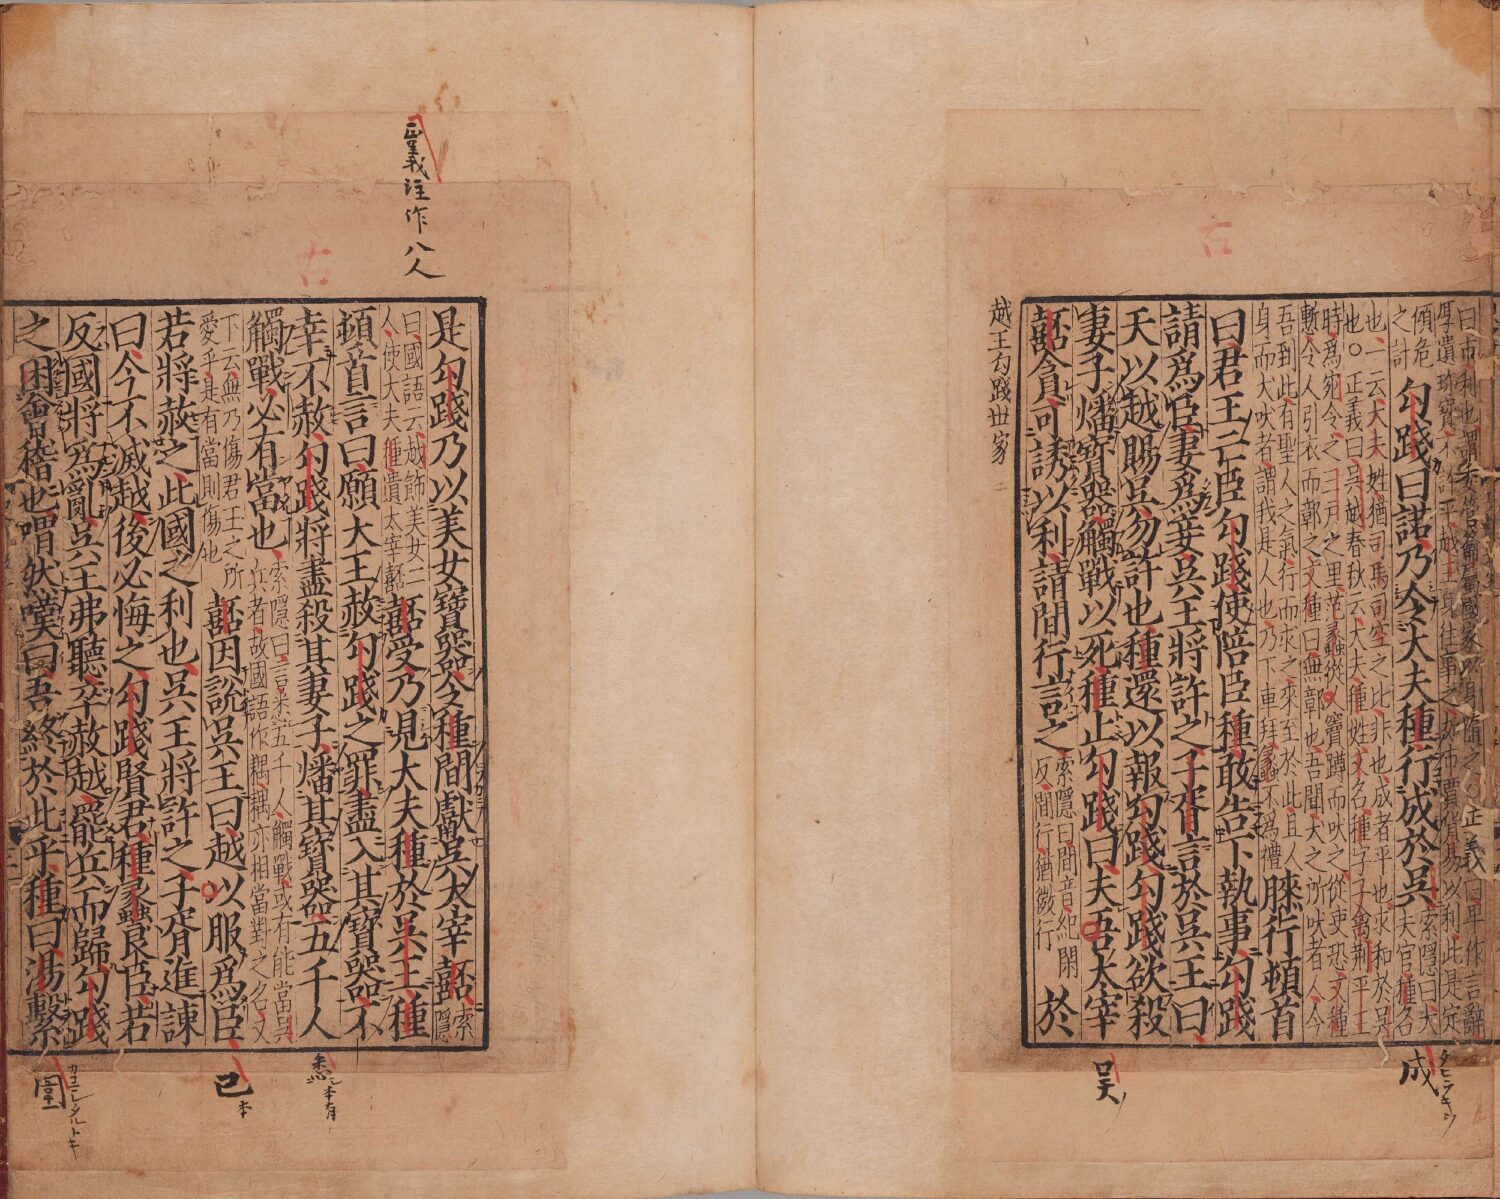 厚遺珍寶不
傾危
之計
勾踐曰諾乃令大夫種行成於吳
索隱曰大
夫官種名
也一云大夫姓猶司馬司空之比非也成者平也求和於吳
也○正義曰吳越春秋云大夫種姓文名種字子禽荊平王
時爲宛令之三戸之里范蠡從犬竇蹲而吠之從吏恐文種
慙令人引衣而鄣之文種曰無鄣也吾聞犬之所吠者人今
吾到此有聖人之氣行而求之來至於此且人
身而犬吠者謂我是人也乃下車拜蠡不爲禮
膝行頓首
曰君王亡臣勾踐使陪臣種敢告下執事勾踐
請爲臣妻爲妾吳王將許之子胥言於吳王曰
天以越賜吳勿許也種還以報勾踐勾踐欲殺
妻子燔寶器觸戰以死種止勾踐曰夫吾太宰
嚭貪可誘以利請間行言之
索隱曰間音紀閑
反間行猶微行
於
越王勾踐世家
成
吴
是勾踐乃以美女寶器令種間獻吳太宰嚭
索隱
曰國語云越飾美女二
人使大夫種遺太宰嚭
嚭受乃見大夫種於吳王種
頓首言曰願大王赦勾踐之罪盡入其寶器不
幸不赦勾踐將盡殺其妻子燔其寶器五千人
觸戰必有當也
索隱曰言悉五千人觸戰或有能當吳
兵者故國語作耦耦亦相當對之名又
下云無乃傷君王之所
愛乎是有當則傷也
嚭因說吳王曰越以服爲臣
若將赦之此國之利也吳王將許之子胥進諫
曰今不滅越後必悔之勾踐賢君種蠡良臣若
反國將爲亂吳王弗聽卒赦越罷兵而歸勾踐
之困會稽也喟然嘆曰吾終於此乎種曰湯繫
正義注作八人
悉本有
已本
圍